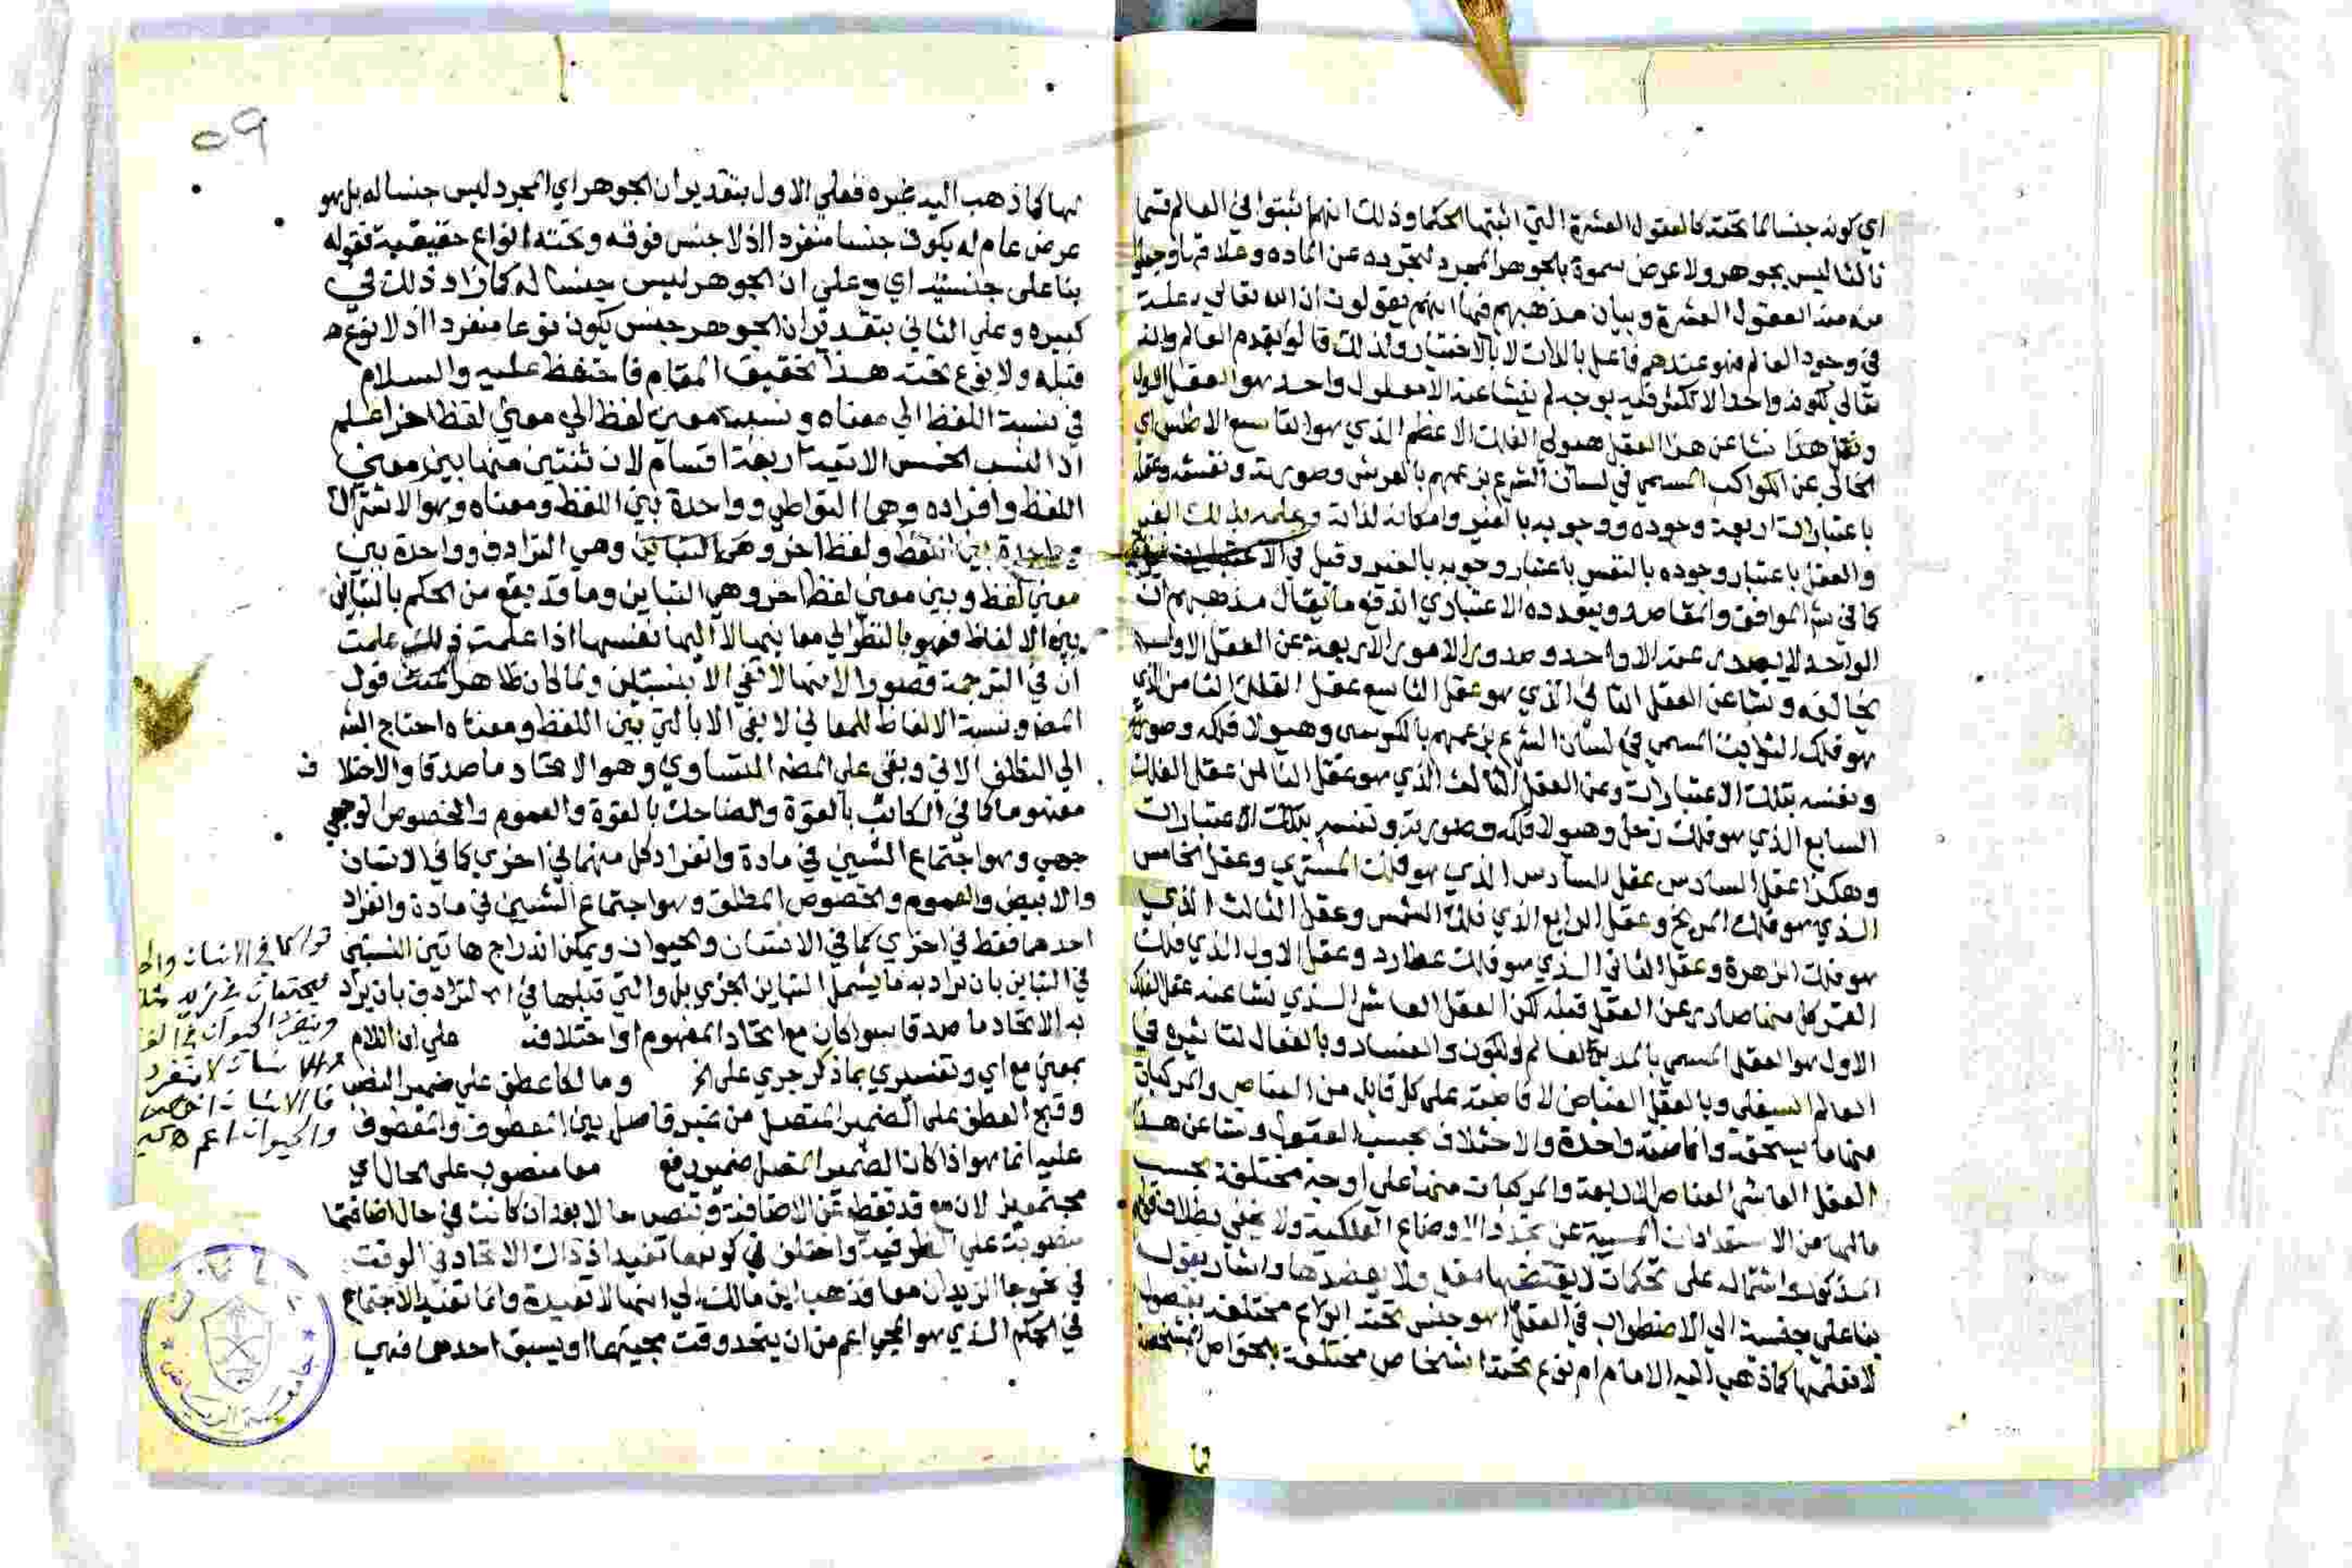 اي كونه جنسا لما تحته كالعقول العشرة التي اثبتها الحكما وذلك انهم اثبتوا في العالم قسما
ثالثا ليس بجوهر ولا عرض سموه بالجوهر المجرد لتجرده عن الماده وعلاقتها وجعلوا
منه هذه العقول العشرة وبيان مذهبهم فيها انهم يقولون ان الله تعالي علة
في وجود العالم فهو عندهم فاعل بالذات لا بالاختيار ولذلك قالوا بقدم العالم والله
تعالي لكونه واحدا لا تكثر فيه بوجه لم ينشا عنه الا معلول واحد هو العقل الاول
نشا عن هذا العقل هيولي الفلك الاعظم الذي هو التاسع الاطلس اي
الخالي عن الكواكب المسمي في لسان الشرع بزعمهم بالعرش وصورته ونفسه وعقله
باعتبارات اربعة وجوده ووجوبه بالغير وامكانه لذاته وعلمه بذلك الغير
والعقل باعتبار وجوده بالنفس باعتبار وجوبه بالغير وقيل في الاعتبارات غير ذلك
كما في شرح المواقف والمقاصد وبتعدده الاعتباري اندفع ما يقال مذهبهم ان
الواحد لا يصدر عنه الا واحد وصدور الامور الاربعة عن العقل الاول
يخالفه ونشا عن العقل الثاني الذي هو عقل التاسع عقل الفلك الثامن الذي
هو فلك الثوابت المسمي في لسان الشرع بزعمهم بالكرسي وهيولا فلكه وصورته
ونفسه بتلك الاعتبارات وعن العقل الثالث الذي هو عقل الثامن عقل الفلك
السابع الذي هو فلك زحل وهيولا فلكه وصورته ونفسه بتلك الاعتبارات
وهكذا عقل السادس الذي هو فلك المشتري وعقل الخامس
الذي هو فلك المريخ وعقل الرابع الذي فلك الشمس وعقل الثالث الذي
هو فلك الزهرة وعقل الثاني الذي هو فلك عطارد وعقل الاول الذي فلك
القمر كل منها صادر عن العقل قبله لكن العقل العاشر الذي نشا عنه عقل الفلك
الاول هو العقل المسمي بالمدبر لعالم الكون والفساد وبالفعال لتاثيره في
العالم السفلي وبالعقل الفياض لافاضته علي كل قابل من العناصر والمركبات
منها ما يستحقه وافاضته واحدة والاختلاف بحسب القبول ونشا عن هذا
العقل العاشر العناصر الاربعة والمركبات منها علي اوجه مختلفة بحسب
مالها من الاستعدادات المسببة عن تجدد الاوضاع الفلكية ولا يخفي بطلان قولهم
المذكور واشتماله علي تحكمات لا يقتضيها عقل ولا يعضدها واشار بقوله
بنا علي جنسية الي الاضطراب في العقل اهو جنس تحته انواع مختلفة بفصول
لا نعلمها كما ذهب اليه الامام ام نوع تحته اشخاص مختلفة بالخواص المشخصة
٥٩
لها كما ذهب اليه غيره فعلي الاول بتقدير ان الجوهر اي المجرد ليس جنسا له بل هو
عرض عام له يكون جنسا منفردا اذ لا جنس فوقه وتحته انواع حقيقية فقوله
بنا علي جنسيته اي وعلي ان الجوهر ليس جنسا له كما زاد ذلك في
كبيره وعلي الثاني بتقدير ان الجوهر جنس يكون نوعا منفردا اذ لا نوع
قبله ولا نوع تحته هذا تحقيق المقام فاحتفظ عليه والسلام
في نسبة اللفظ الي معناه ونسبة معني لفظ الي معني لفظ اخر اعلم
ان النسب الخمس الاتية اربعة اقسام لان ثنتين منها بين معني
اللفظ وافراده وهما التواطي وواحدة بين اللفظ ومعناه وهو الاشتراك
وواحدة بين اللفظ ولفظ اخر وهي التباين وهي الترادف وواحدة بين
معني لفظ وبين معني لفظ اخر وهي التباين وما قد يقع من الحكم بالتباين
بين الالفاظ فهو بالنظر الي معانيها لا اليها نفسها اذا علمت ذلك علمت
ان في الترجمة قصورا لانها لا تفي الا بنسبتين ولما كان ظاهر المتن قول
المصـ ونسبة الالفاظ للمعاني لا يفي الا بالتي بين اللفظ ومعناه احتاج الشـ
الي التكلف الاتي وبقي علي المصـ التساوي وهو الاتحاد ماصدقا والاختلاف
مفهوما كما في الكاتب بالقوة والضاحك بالقوة والعموم والخصوص الوجهي
جهي وهو اجتماع الشيين في مادة وانفراد كل منهما في اخري كما في الانسان
والابيض والعموم والخصوص المطلق وهو اجتماع الشيين في مادة وانفراد
احدهما فقط في اخري كما في الانسان والحيوان ويمكن اندراج هاتين النسبتين
في التباين بان يراد به ما يشمل التباين الجزي بل والتي قبلها في الترادف بان يراد
به الاتحاد ماصدقا سوا كان مع اتحاد المفهوم او اختلافه علي ان اللام
بمعني مع اي وتفسيري بما ذكر جري علي الخ وما لها عطف علي ضمير النصب
وقبح العطف علي الضمير المتصل من غير فاصل بين المعطوف والمعطوف
عليه انما هو اذا كان الضمير المتصل ضمير رفع معا منصوب علي الحال اي
مجتمعين لان مع قد تقطع عن الاضافة وتنصب حالا بعد ان كانت في حال اضافتها
منصوبة علي الظرفية واختلف في كونها تفيد اذ ذاك الاتحاد في الوقت
في نحو جا الزيدان معا فذهب ابن مالك الي انها لا تفيده وانما تفيد الاجتماع
في الحكم الذي هو المجي اعم من ان يتحد وقت مجيئهما او يسبق احدهما فهي
كما في الانسان
يجتمعان في زيد مثلا
وينفرد الحيوان في
والانسان لا ينفرد
فالانسان اخص
والحيوان اعم
جامعة الرياض